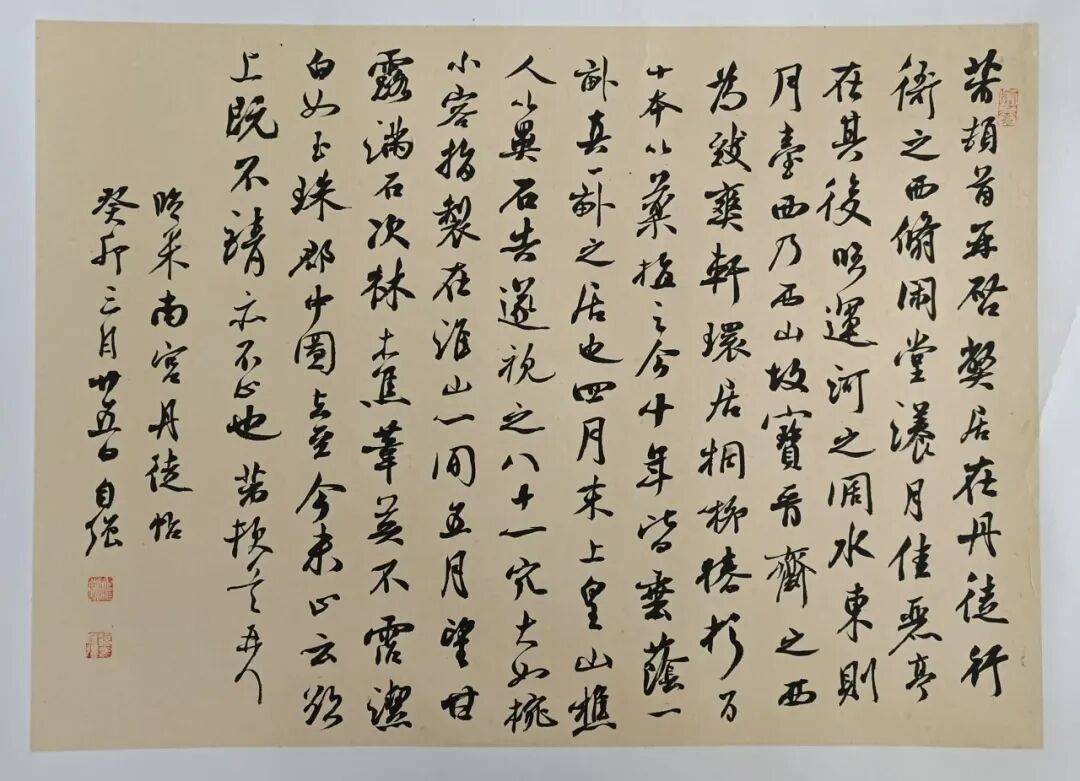 芾頓首再啓弊居在丹徒行
衙之西翛閑堂漾月佳麗亭
在其後臨運河之闊水東則
月臺西乃西山故寶晉齋之西
為致爽軒環居桐柳椿杉百
十本以藥植之今十年皆垂蔭一
畝真一畝之居也四月末上皇山樵
人以異石告遂視之八十一穴大如椀
小容指製在淮山一間五月望甘
露滿石次林木蕉葦莫不霑潔
白如玉珠郡中圖去至今未止云欲
上既不請亦不止也芾頓首再拜
臨米南宮丹徒帖
癸卯三月廿五日自强